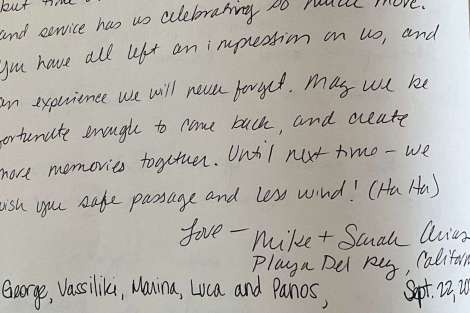 but time
and service has us celebrating so much more.
you have all left an impression on us, and
an experience we will never forget. May we be
fortunate enough to come back, and create
more memories together. Until next time - we
wish you safe passage and less wind! (Ha Ha)
Love -
Mike + Sarah Arias
Playa Del Rey, Californ
George, Vassiliki, Marina, Luca and Panos,
Sept. 22, 20